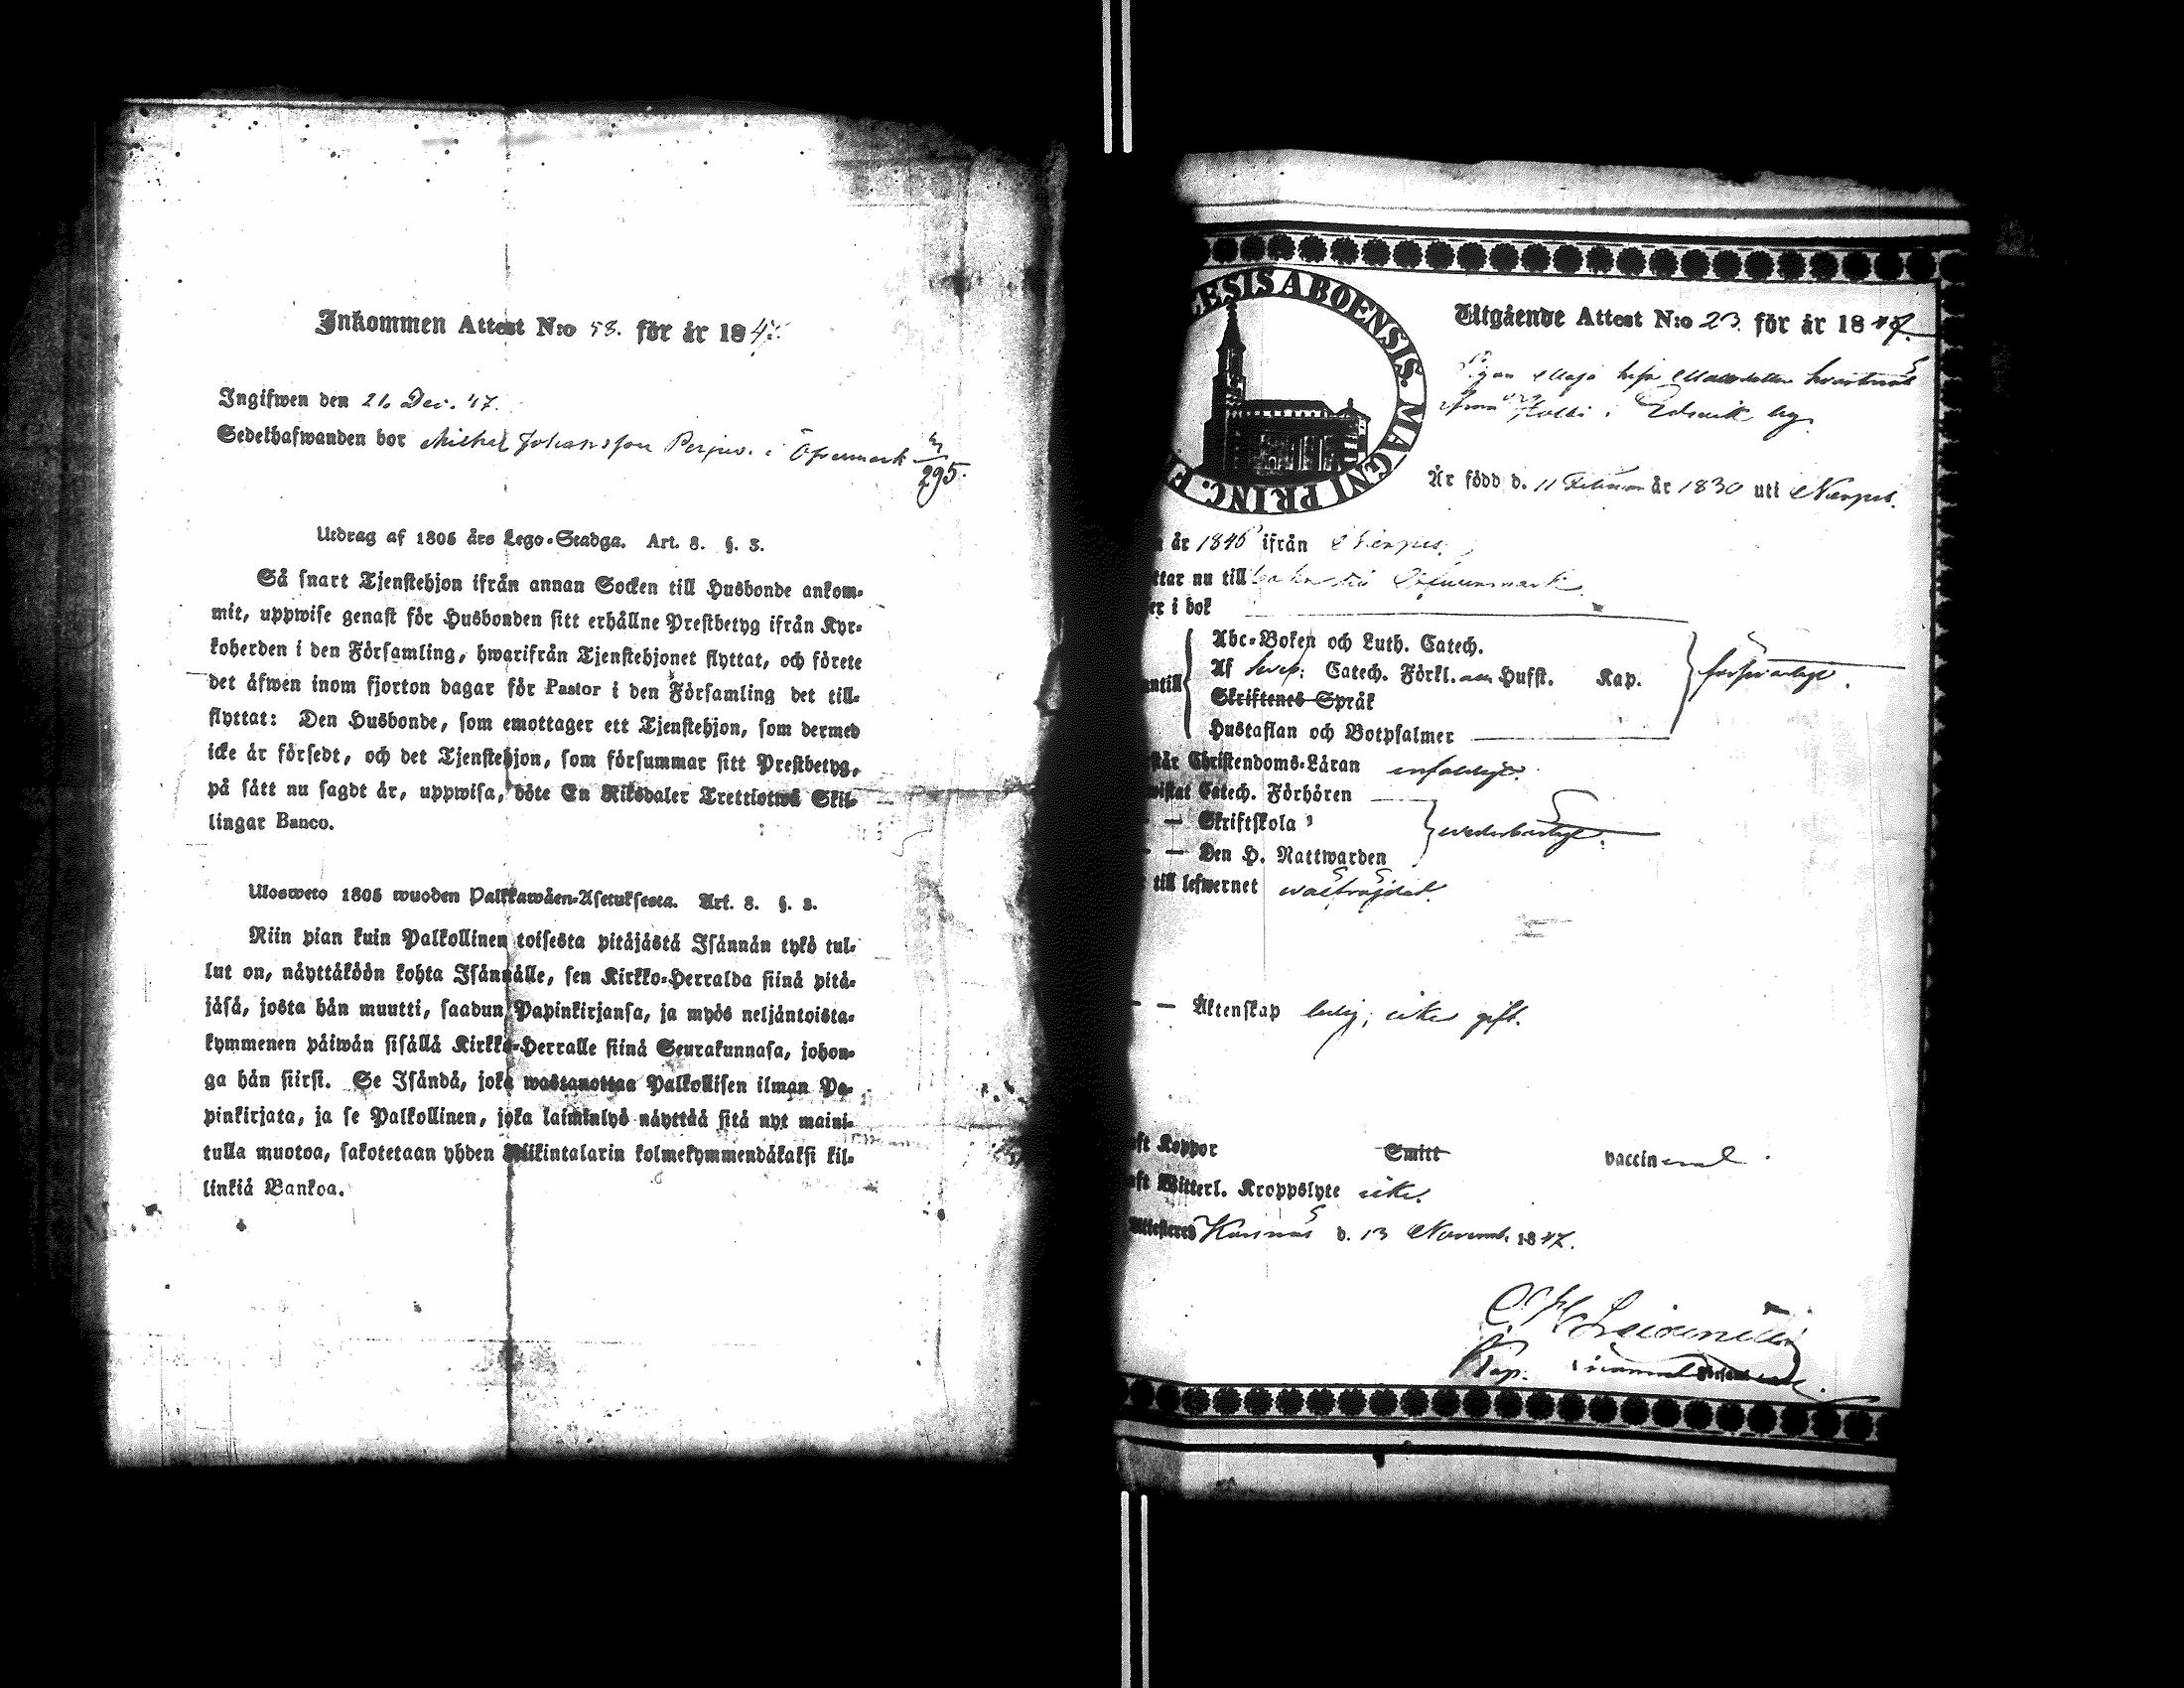 Inkommen Attest N:o 58. för år 1847.
Ingifwen den 21. Dec. 47.
Sedelhafwanden bor Michel Johansson i Öfvermark
295.
Utdrag af 1805 års Lego-Stadga. Art. 8. §. 3.
Så snart Tjenstehjon ifrån annan Socken till Husbonde ankom-
mit, uppwise genast för Husbonden sitt erhållne Prestbetyg ifrån Kyr-
koherden i den Församling, hwarifrån Tjenstehjonet flyttat, och förete
det äfwen inom fjorton dagar för Pastor i den Församling det till-
flyttat: Den Husbonde, som emottager ett Tjenstehjon, som dermed
icke är försedt, och det Tjenstehjon, som försummar sitt Prestbetyg,
på sätt nu sagdt är, uppwisa, böte En Riksdaler Trettiotwå Skil-
lingar Banco.
Ulosweto 1805 wuoden Palkkawäen-Asetuksesta. Art. 8. §. 3.
Niin pian kuin Palkollinen toisesta pitäjästä Isännän tykö tul-
lut on, näyttäköön kohta Isännälle, sen Kirkko-Herralda siinä pitä-
jäsä, josta hän muutti, saadun Papinkirjansa, ja myös neljäntoista-
kymmenen päiwän sisällä Kirkko-Herralle siinä Seurakunnasa, johon-
ga hän siirsi. Se Isändä, joka wastanottaa Palkollisen ilman Pa-
pinkirjata, ja se Palkollinen, joka laiminlyö näyttää sitä nyt maini-
tulla muotoa, sakotetaan yhden Riikintalarin kolmekymmendäkaksi kil-
linkiä Bankoa.
LESIS ABOENSIS. MAGNI PRINC. F
Utgående Attest N:o 23. för år 1847.
Pigan Maja Mattsdotter
i by
Är född d. 11 Februari år 1830 uti Nerpes.
år 1846 ifrån Nerpes.
ttar nu till Öfvermark.
er i bok
Abc-Boken och Luth. Catech.
Af Sveb: Catech. Förkl. Hufst. Kap.
ntill Skriftenes Språk
försvarligt.
Hustaflan och Botpsalmer
står Christendoms-Läran enfaldigt.
wistat Catech. Förhören
— — Skriftskola
vederbörligt.
— — Den H. Nattwarden
till lefwernet välfrejdad.
— — Äktenskap ledig, icke gift.
ft Koppor Smitt vaccinerad.
ft Witterl. Kroppslyte icke.
Attesteras Korsnäs d. 13 Novemb. 1847.
Kap.